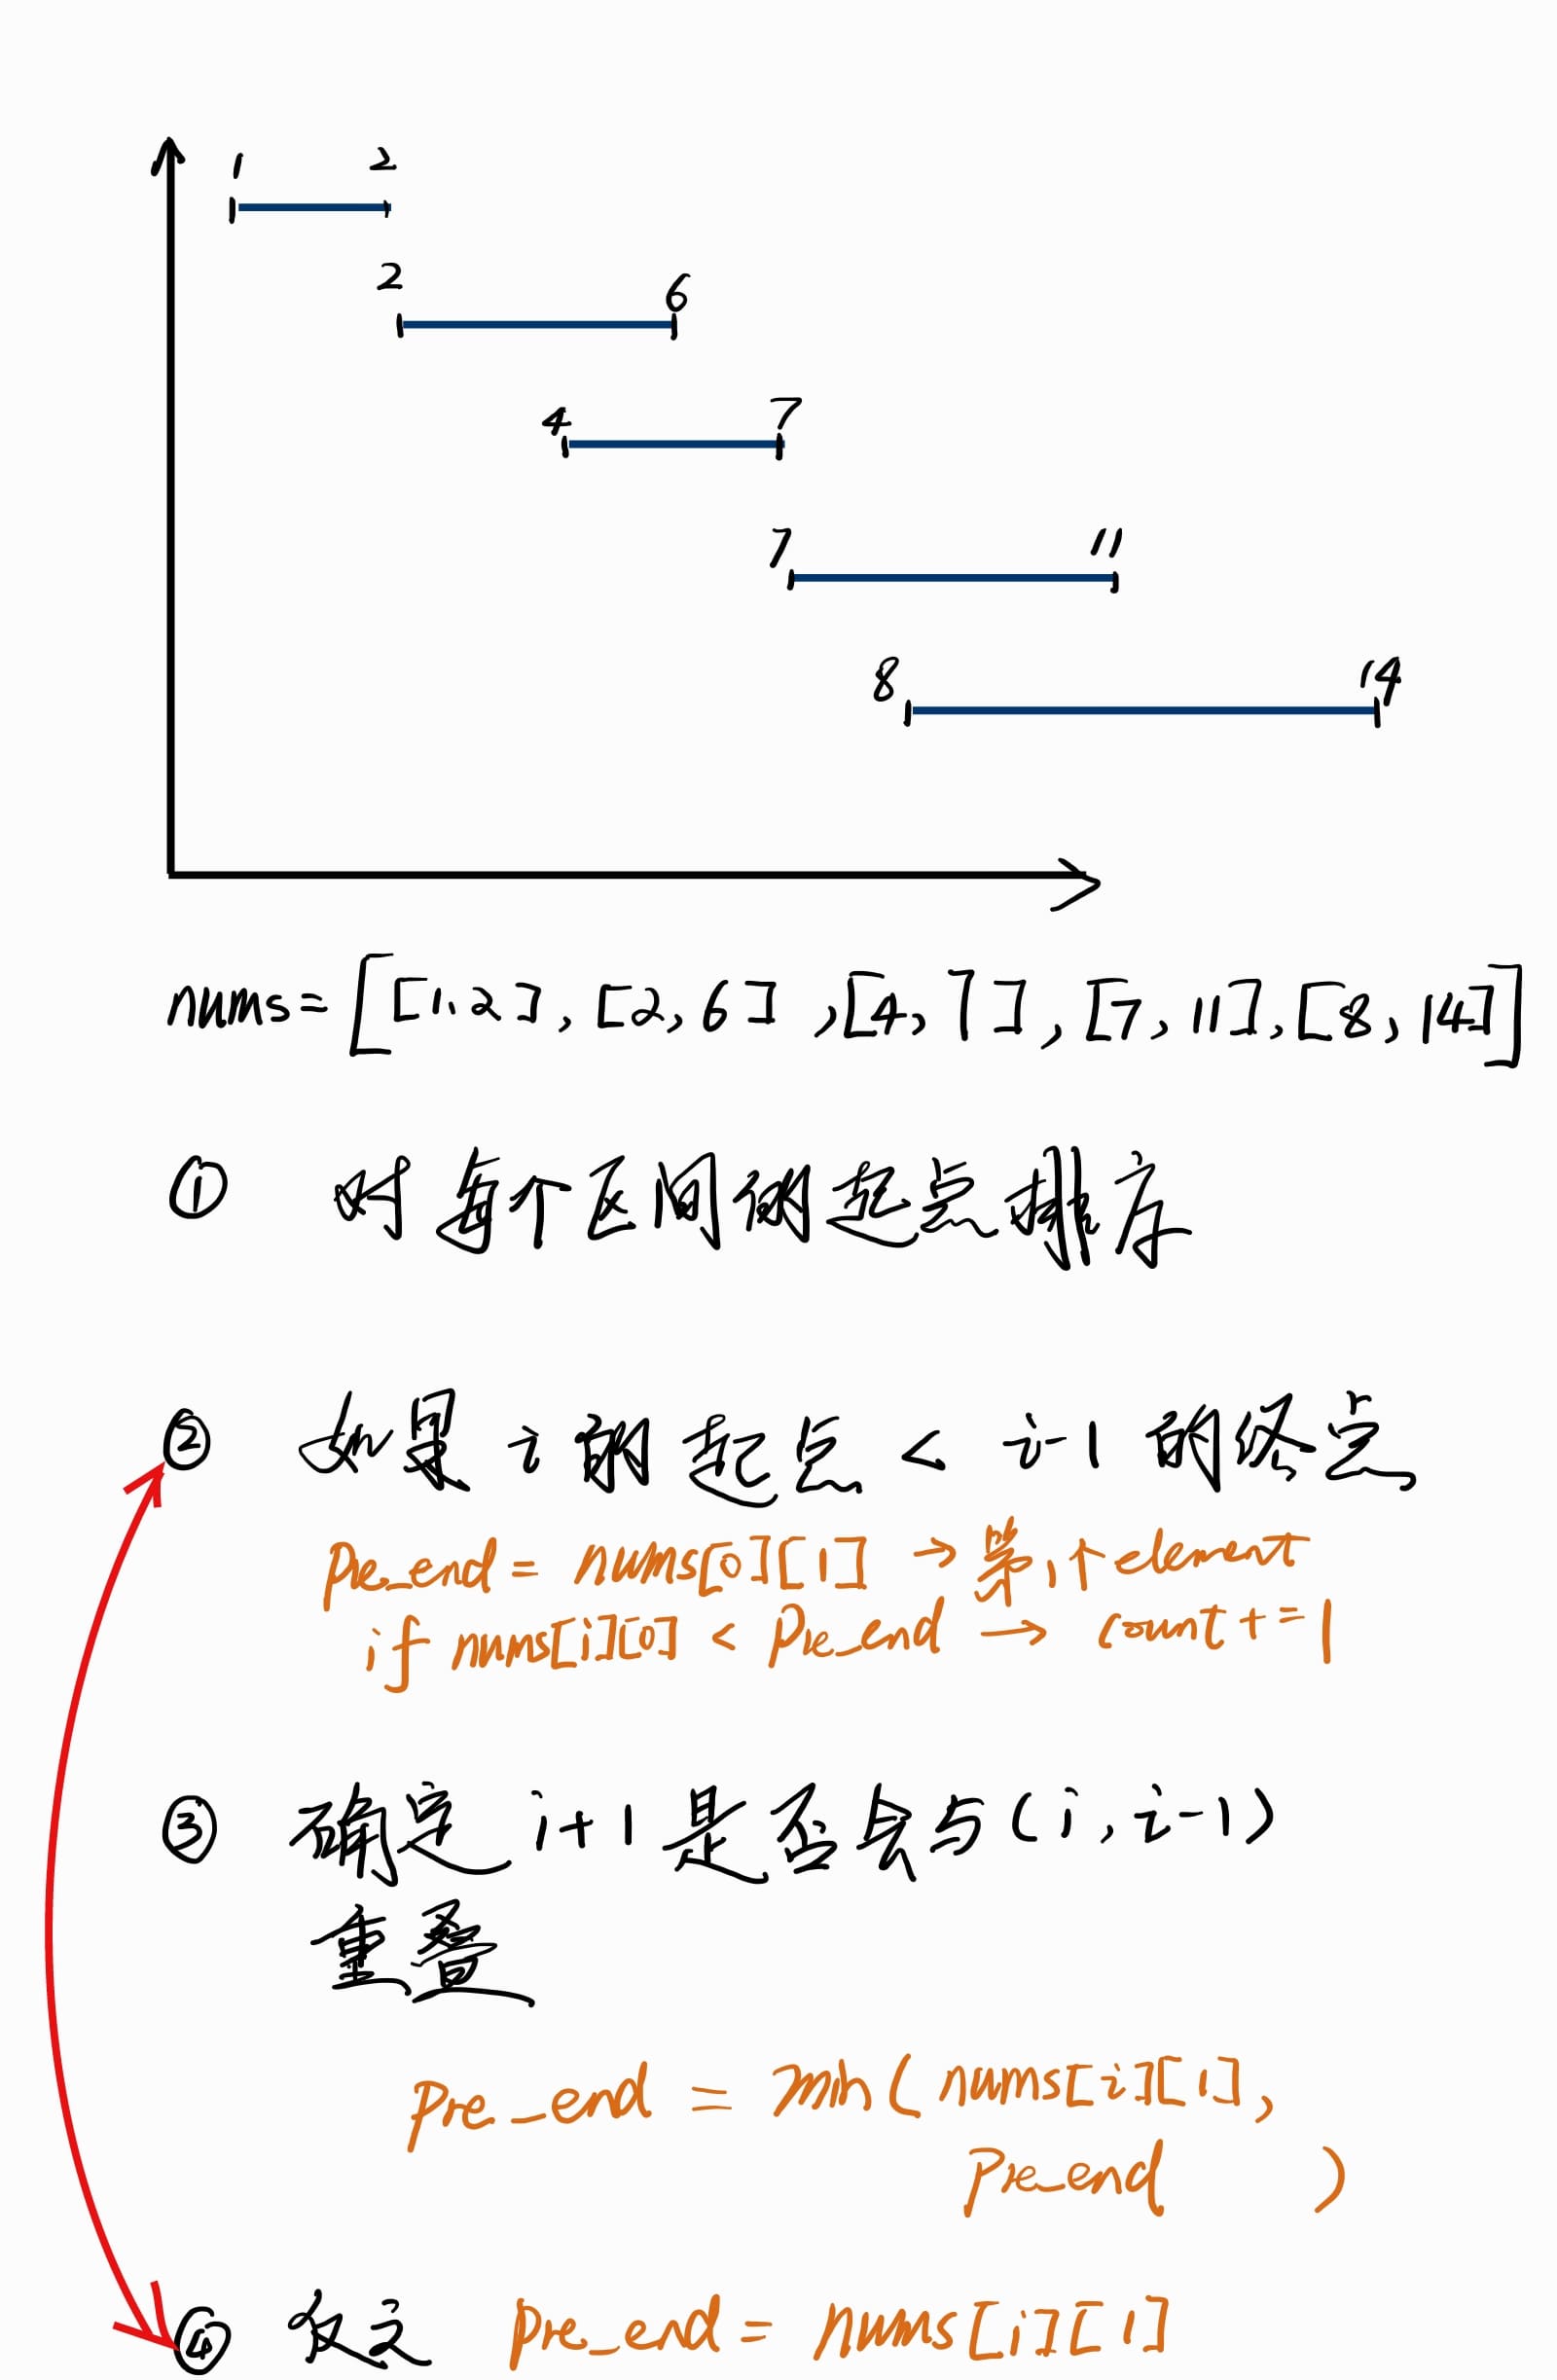 1 2
2 6
4 7
7 11
8 14
nums=[[1,2],[2,6],[4,7],[7,11],[8,14]]
① 对每个区间的起点排序
② 如果 i 的起点 < i-1 的终点
pre_end = nums[0][1] → 第1个element
if nums[i][0] < pre_end → count+=1
③ 确定 i+1 是否会与(i, i-1)
重叠
pre_end = min(nums[i][1],
pre_end )
④ 反之 pre_end = nums[i][1]